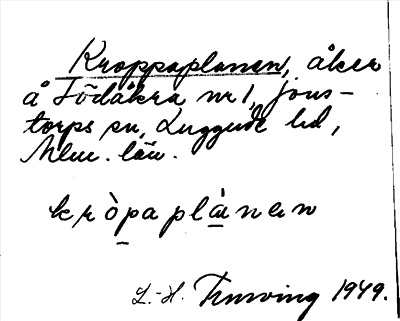 Kroppaplanen, åker
å Södåkra nr 1, Jons-
torps sn, Luggude hd,
Mlm. län.
kròpaplànen
L.-H. 1949.